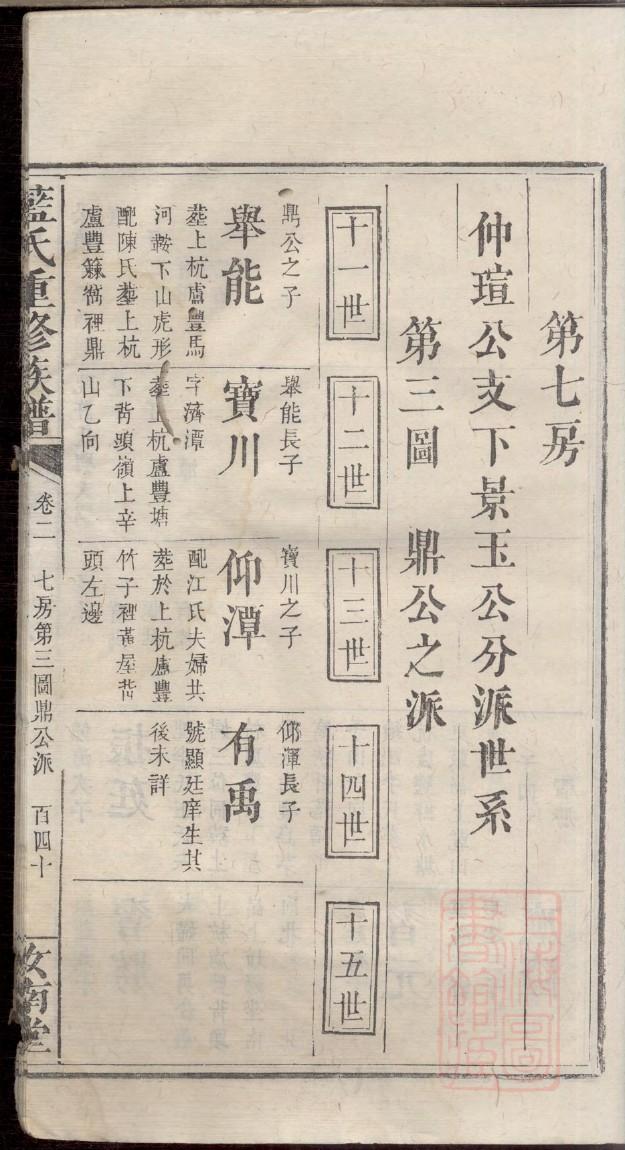 第七房
仲瑄公支下景玉公分派世系
第三圖 鼎公之派
十一世
十二世
十三世
十四世
十五世
鼎公之子
舉能
塟上杭盧豐馬
河鞍下山虎形
配陳氏塟上杭
盧豐裡鼎
舉能長子
寶川
字濟潭
塟上杭盧豐塘
下背頭嶺上辛
山乙向
寶川之子
仰潭
配江氏夫婦共
塟於上杭盧豐
竹子裡舊屋背
頭左邊
仰渾長子
有禹
號顯廷庠生其
後未詳
藍氏重修族譜
卷二
七房第三圖鼎公派
百四十
汝南堂